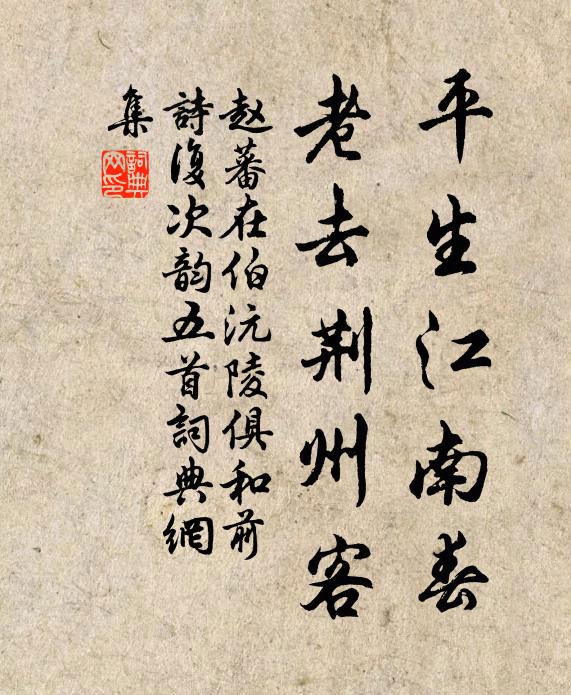 平生江南春
老去荆州客
赵蕃在伯沅陵俱和前
詩復次韵五首詞典網
集
詞典
网印